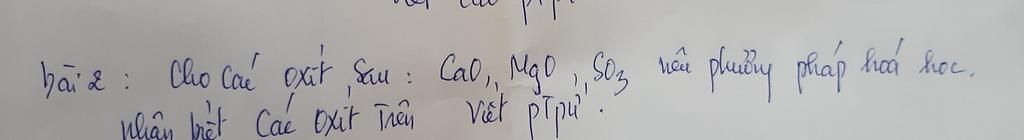 bài 2 : Cho các oxit sau : CaO, MgO, SO3 nêu phương pháp hoá học.
nhận biết các oxit trên viết ptpứ.